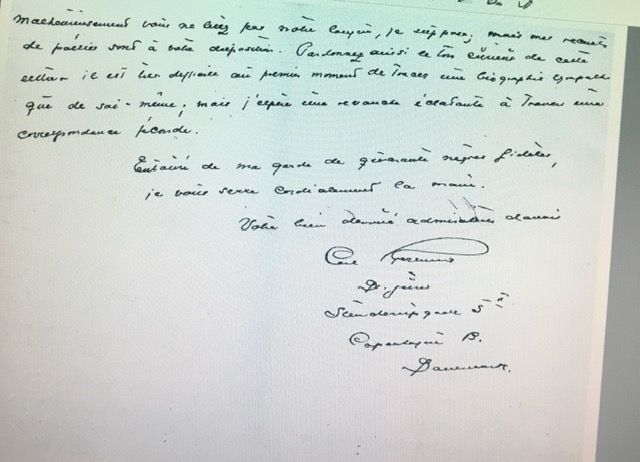 Malheureusement vous ne lisez pas notre langue, je suppose; mais mes recueils
de poésies sont à votre disposition. Pardonnez aussi le ton de cette
lettre - il est très difficile au premier moment de tracer une biographie
que de soi-même; mais j'espère une revanche éclatante à travers une
correspondance féconde.
Entouré de ma garde de quarante nègres fidèles,
je vous serre cordialement la main.
Votre bien dévoué admirateur danois
Dr. juris
5
Copenhague B.
Danemark.